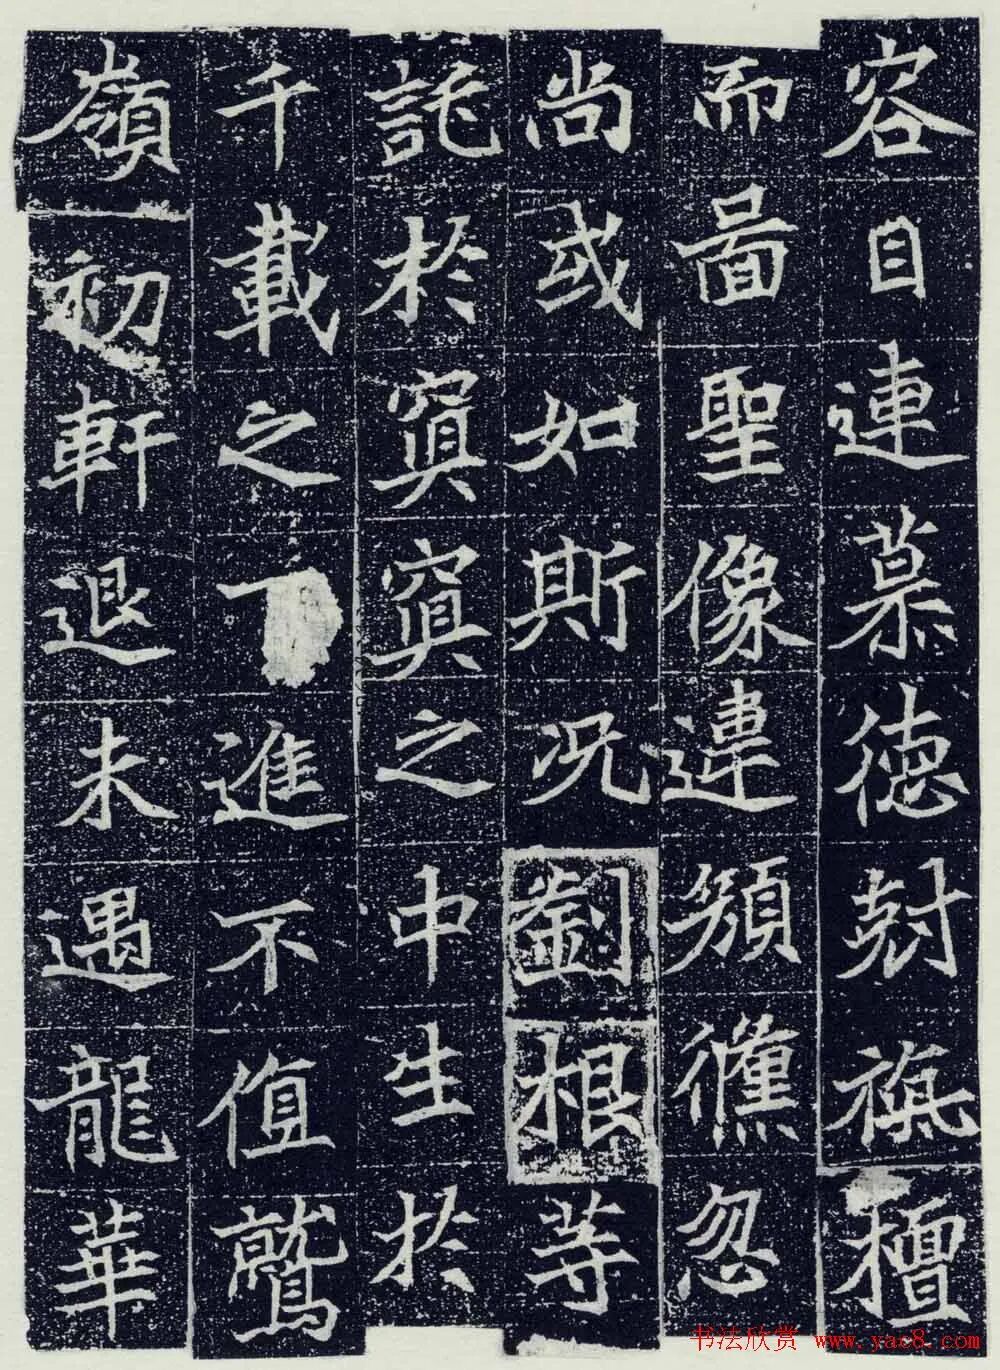 容目連慕德尅旃檀
而啚聖像違顏儵忽
尚或如斯況劉根等
託於冥冥之中生於
千載之下進不值鷲
嶺初軒退未遇龍華
书法欣赏 www.yac8.com